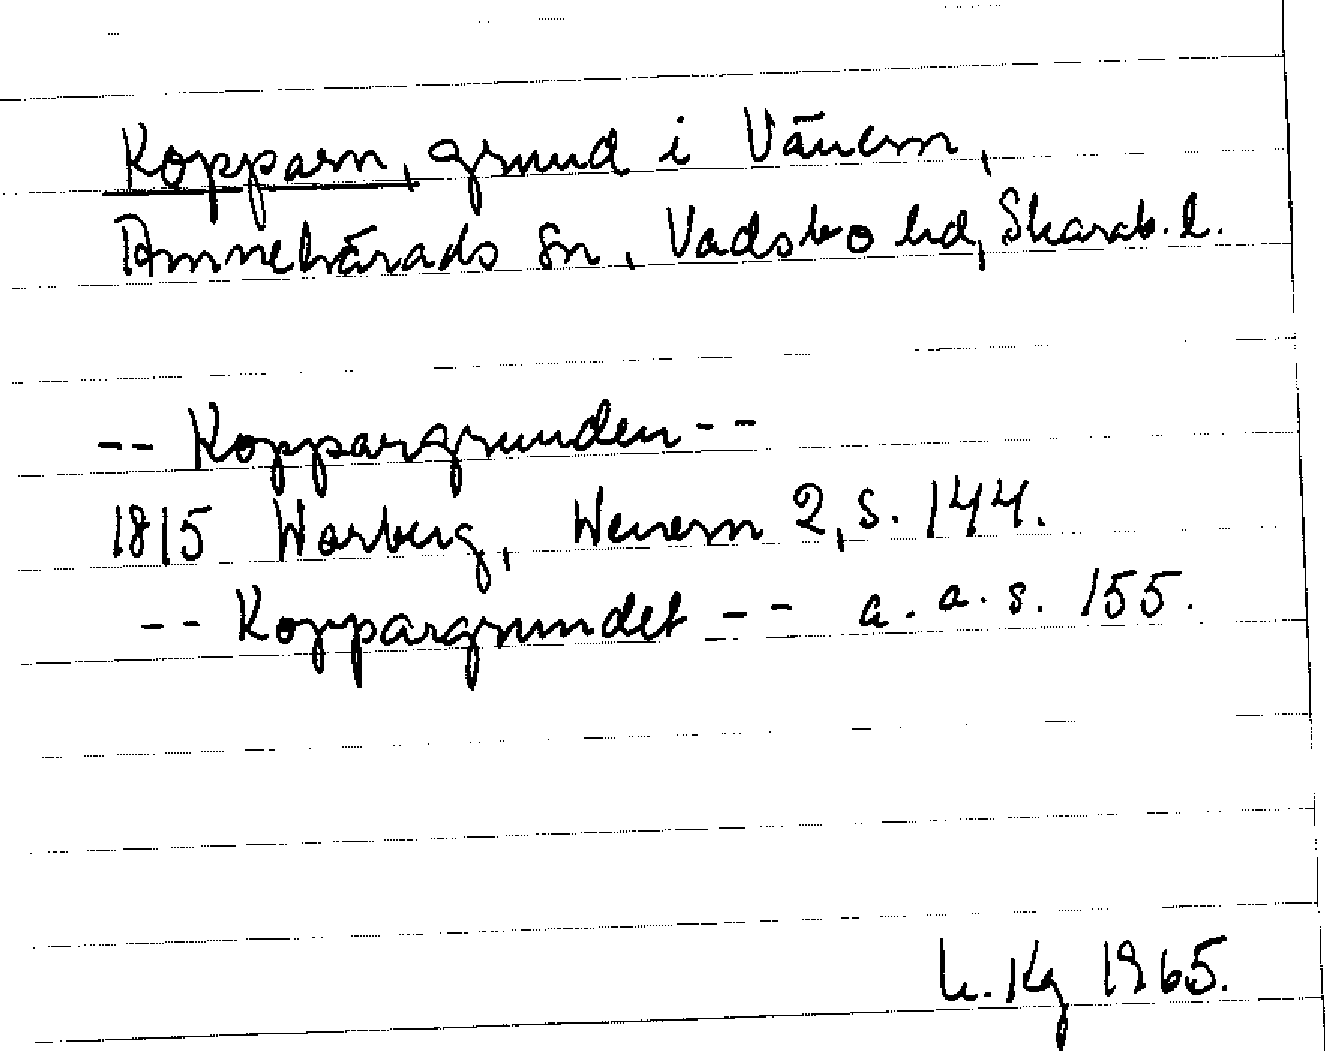 Kopparn, grund i Vänern,
Amnehärads sn, Vadsbo hd, Skarab. l.
-- Koppargrunden --
1815 Warberg, Wenern 2, s. 144.
-- Koppargrundet -- a. a. s. 155.
Kg 1965.